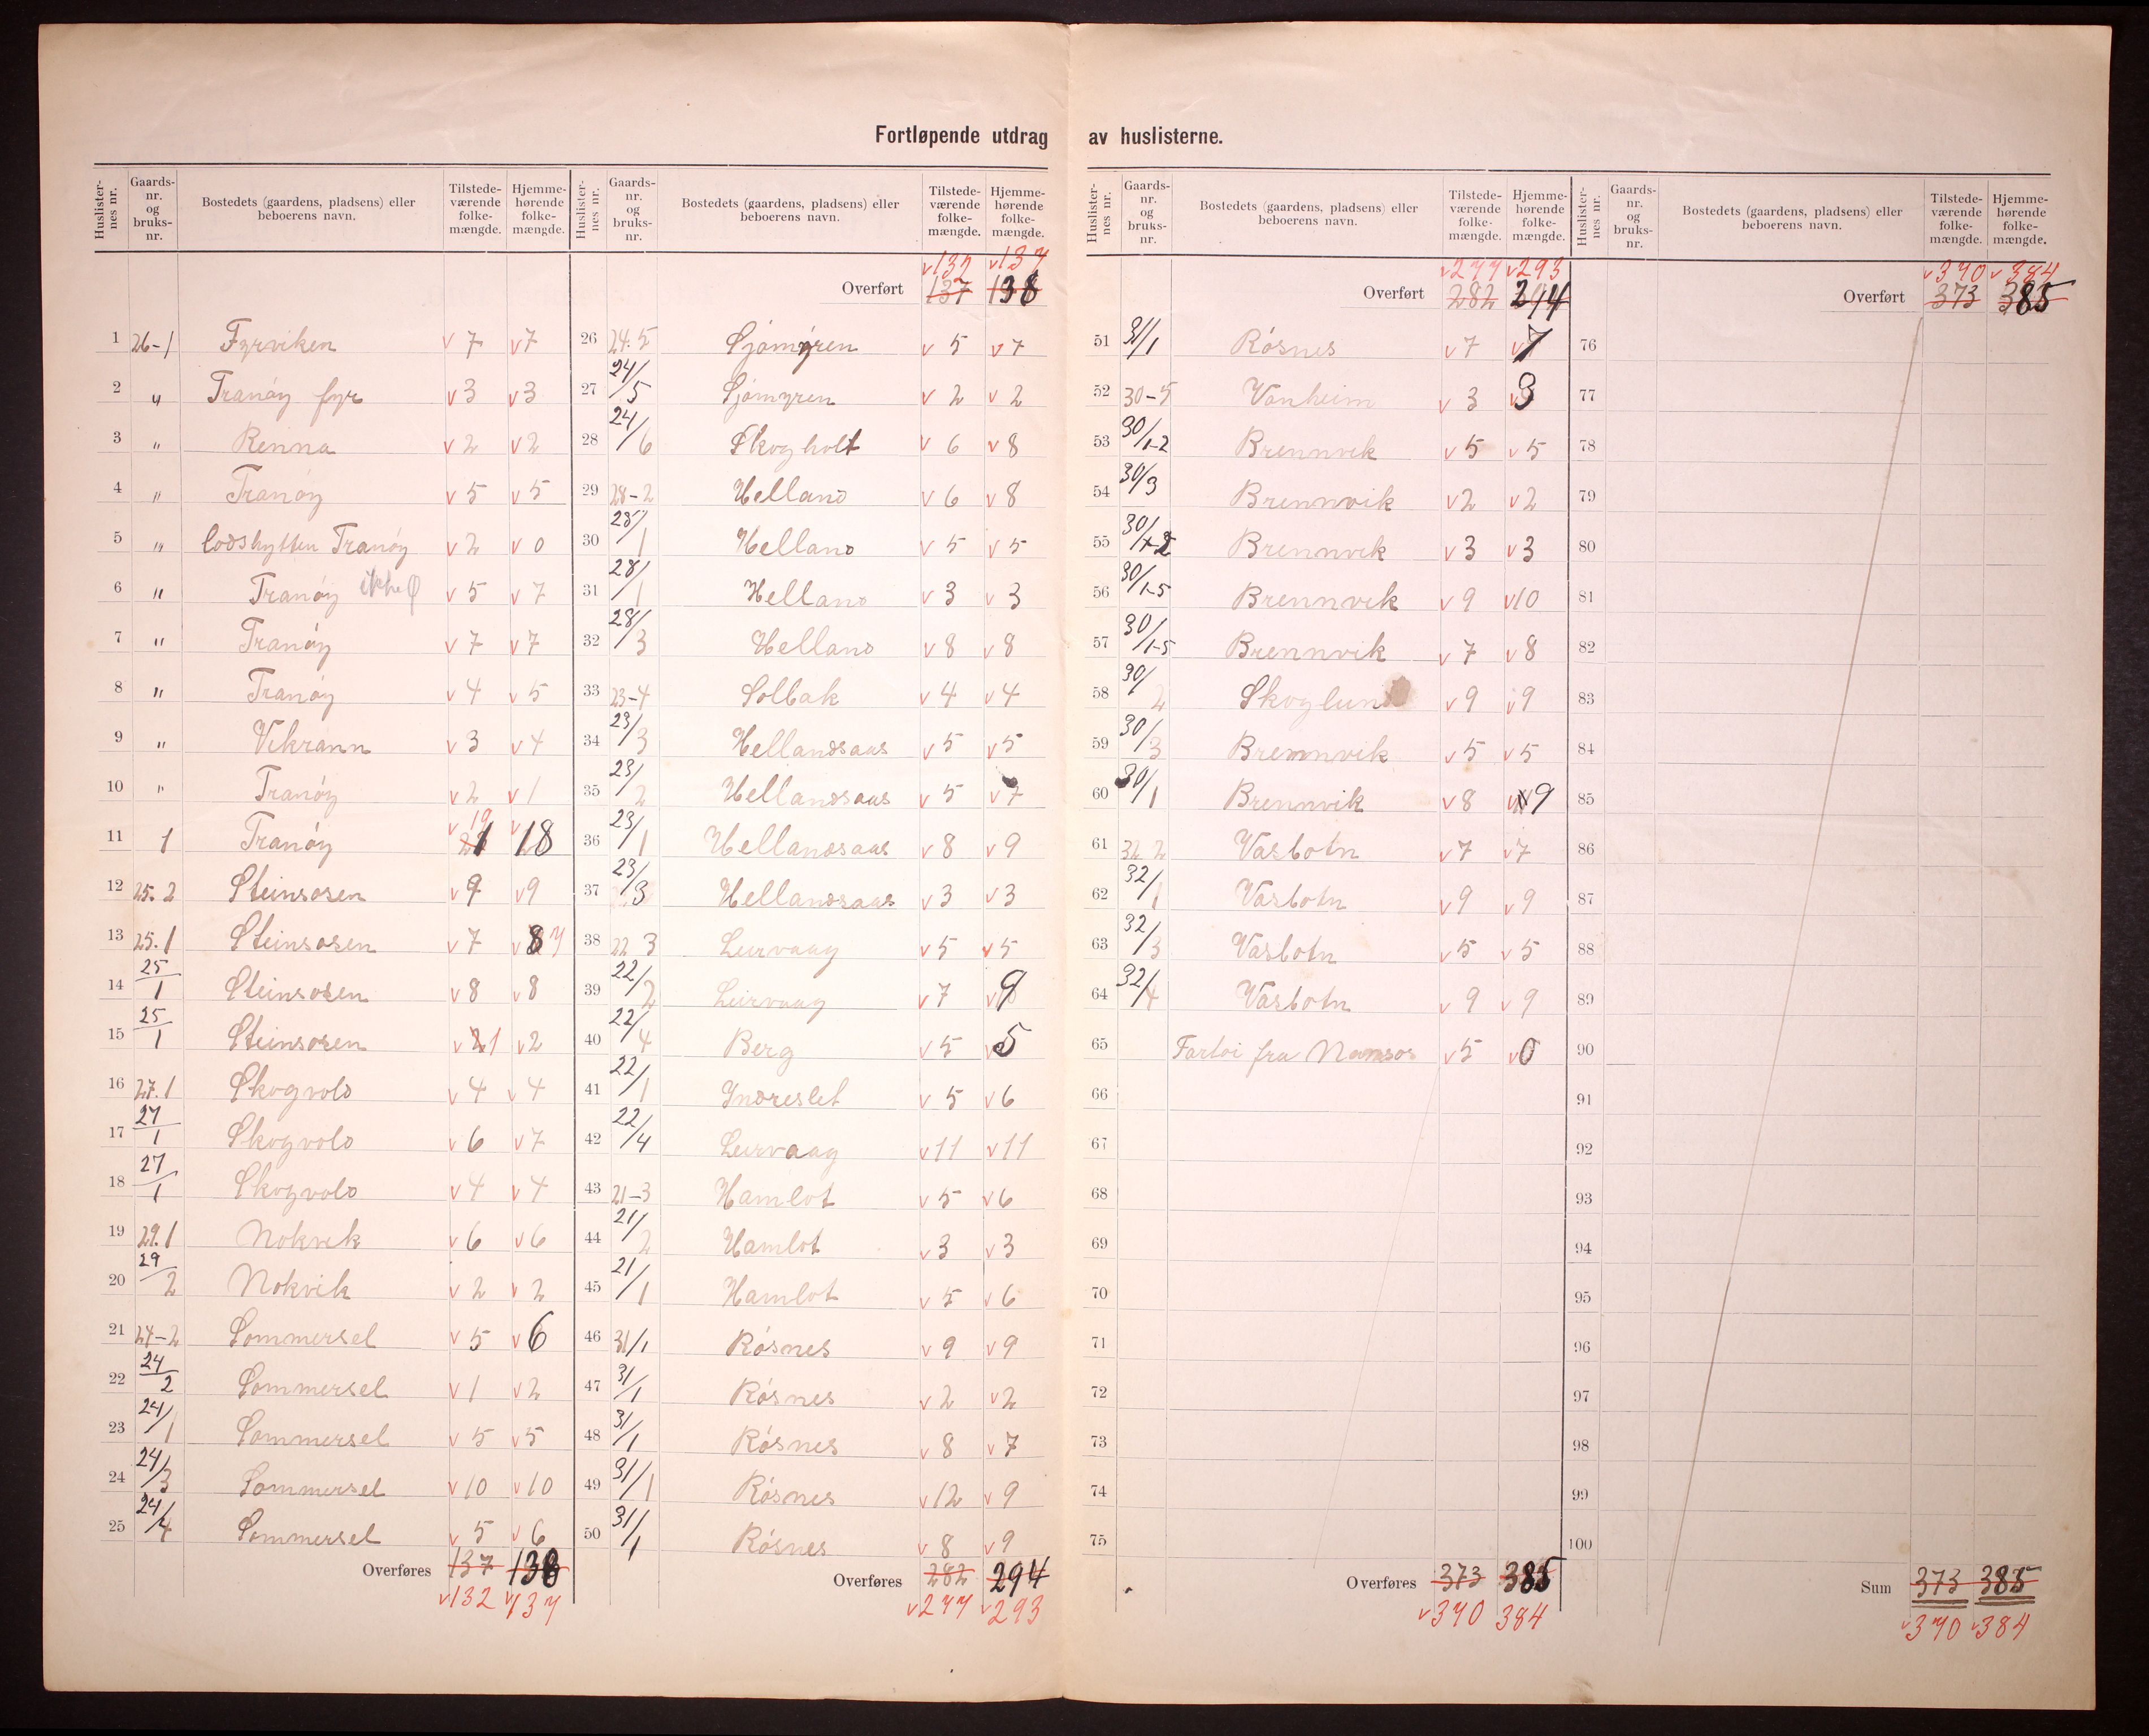 Fortløpende utdrag av huslisterne.
Huslisternes nr. Gaards-nr. og bruks-nr. Bostedets (gaardens, pladsens) eller beboerens navn. Tilstedeværende folkemængde. Hjemmehørende folkemængde.
1 26-1 Fyrviken v 7 v 7
2 " Tranøy fyr v 3 v 3
3 " Renna v 2 v 2
4 " Tranøy v 5 v 5
5 " Lodshytten Tranøy v 2 v 0
6 " Tranøy ikke v 5 v 7
7 " Tranøy v 7 v 7
8 " Tranøy v 4 v 5
9 " Vikrann v 3 v 4
10 " Tranøy v 2 v 1
11 1 Tranøy v 19 21 v 18
12 25.2 Steinsosen v 9 v 9
13 25.1 Steinsosen v 7 v 8 7
14 25/1 Steinsosen v 8 v 8
15 25/1 Steinsosen v 2 1 v 2
16 27.1 Skogvold v 4 v 4
17 27/1 Skogvold v 6 v 7
18 27/1 Skogvold v 4 v 4
19 29.1 Nokvik v 6 v 6
20 29/2 Nokvik v 2 v 2
21 24-2 Sommersel v 5 v 6
22 24/2 Sommersel v 1 v 2
23 24/1 Sommersel v 5 v 5
24 24/3 Sommersel v 10 v 10
25 24/4 Sommersel v 5 v 6
Overføres 137 138
v 132 v 137
Huslisternes nr. Gaards-nr. og bruks-nr. Bostedets (gaardens, pladsens) eller beboerens navn. Tilstedeværende folkemængde. Hjemmehørende folkemængde.
v 132 v 137
Overført 137 138
26 24.5 Sjømyren v 5 v 7
27 24/5 Sjømyren v 2 v 2
28 24/6 Skogholt v 6 v 8
29 28-2 Helland v 6 v 8
30 28/1 Helland v 5 v 5
31 28/1 Helland v 3 v 3
32 28/3 Helland v 8 v 8
33 23-4 Solbak v 4 v 4
34 23/3 Hellandsaas v 5 v 5
35 23/2 Hellandsaas v 5 v 7
36 23/1 Hellandsaas v 8 v 9
37 23/3 Hellandsaas v 3 v 3
38 22 3 Leirvaag v 5 v 5
39 22/2 Leirvaag v 7 v 9
40 22/4 Berg v 5 v 5
41 22/1 Indreslet v 5 v 6
42 22/4 Leirvaag v 11 v 11
43 21-3 Hamlot v 5 v 6
44 21/2 Hamlot v 3 v 3
45 21/1 Hamlot v 5 v 6
46 31/1 Røsnes v 9 v 9
47 31/1 Røsnes v 2 v 2
48 31/1 Røsnes v 8 v 7
49 31/1 Røsnes v 12 v 9
50 31/1 Røsnes v 8 v 9
Overføres 282 294
v 277 v 293
Huslisternes nr. Gaards-nr. og bruks-nr. Bostedets (gaardens, pladsens) eller beboerens navn. Tilstedeværende folkemængde. Hjemmehørende folkemængde.
v 277 v 293
Overført 282 294
51 31/1 Røsnes v 7 v 7
52 30-5 Vonheim v 3 v 3
53 30/1-2 Brennvik v 5 v 5
54 30/3 Brennvik v 2 v 2
55 30/1-2 Brennvik v 3 v 3
56 30/1-5 Brennvik v 9 v 10
57 30/1-5 Brennvik v 7 v 8
58 30/2 Skoglund v 9 v 9
59 30/3 Brennvik v 5 v 5
60 30/1 Brennvik v 8 v 9
61 32 2 Vasbotn v 7 v 7
62 32/1 Vasbotn v 9 v 9
63 32/3 Vasbotn v 5 v 5
64 32/4 Vasbotn v 9 v 9
65 Fartøi fra Namsos v 5 v 0
66
67
68
69
70
71
72
73
74
75
Overføres 373 385
v 370 384
Huslisternes nr. Gaards-nr. og bruks-nr. Bostedets (gaardens, pladsens) eller beboerens navn. Tilstedeværende folkemængde. Hjemmehørende folkemængde.
v 370 v 384
Overført 373 385
76
77
78
79
80
81
82
83
84
85
86
87
88
89
90
91
92
93
94
95
96
97
98
99
100
Sum 373 385
v 370 v 384